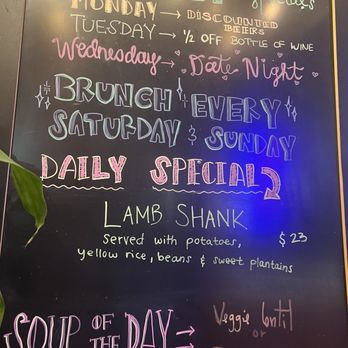 MONDAY → DISCOUNTED BEERS
TUESDAY → 1/2 OFF BOTTLE OF WINE
Wednesday → Date Night
BRUNCH EVERY
SATURDAY & SUNDAY
DAILY SPECIAL
LAMB SHANK
served with potatoes, $23
yellow rice, beans & sweet plantains
SOUP OF THE DAY → Veggie lentil
or